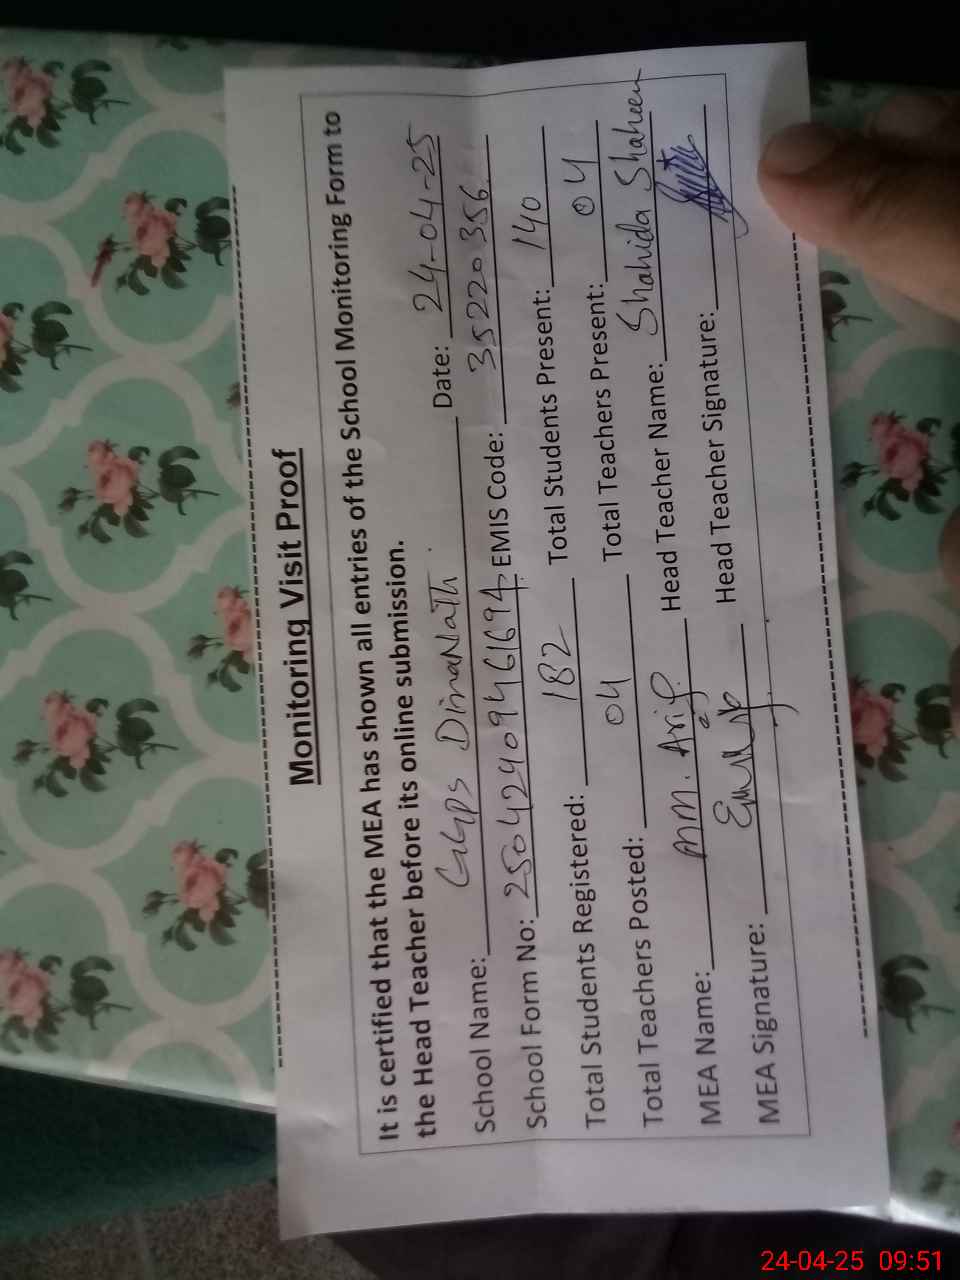 Monitoring Visit Proof
It is certified that the MEA has shown all entries of the School Monitoring Form to
the Head Teacher before its online submission.
School Name: GGPS DinaNaTh. Date: 24-04-25
School Form No: 25042409461694 EMIS Code: 35220356
Total Students Registered: 182 Total Students Present: 140
Total Teachers Posted: 04 Total Teachers Present: 04
MEA Name: M. Arif Head Teacher Name: Shahida Shaheen
MEA Signature: Head Teacher Signature:
24-04-25 09:51